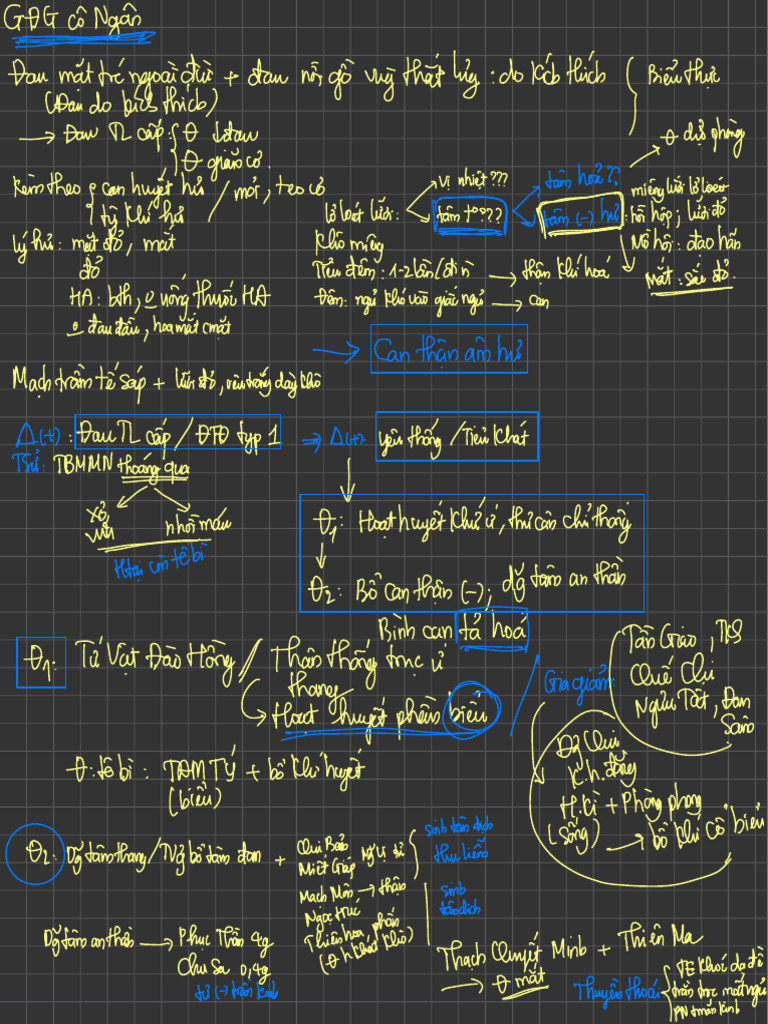 GĐG cô Ngân
Đau mắt trê ngoài đùi + đau nối gồ vùng thắt lưng : do kích thích
(Đau do kích thích)
→ Đau TL cấp: θ ↓đau
θ giãn cơ.
Biểu thực
θ dự phòng
Kèm theo can huyết hư / mỏi, teo cơ
tỳ khí hư
lý hư: mặt đỏ, mắt
đỏ
HA: bth, uống thuốc HA
đau đầu, hoa mắt cmặt
lở loét lưỡi:
Vị nhiệt???
tâm to???
tâm hoả??
tâm (-) hư
miệng lưỡi lở loét
hồi hộp; lưỡi đỏ
Mồ hôi: đạo hãn
Mắt: sắc đỏ.
Khô miệng
Tiểu đêm: 1-2 lần/đi n → thận khí hoá
Đêm: ngủ khó vào giấc ngủ → can
→ Can thận âm hư
Mạch trầm tế sáp + lưỡi đỏ, rêu trắng dày khô
Δ(+): Đau TL cấp / ĐTĐ typ 1 ⇒ Δ(+): yêu thống / Tiêu khát
TSử: TBMMN thoáng qua
Xơ vữa
nhồi máu
Htại còn tê bì
θ1: Hoạt huyết khứ ứ, thư cân chỉ thống
θ2: Bổ can thận (-); dg tâm an thần
Bình can tả hoả
θ1: Tứ Vật Đào Hồng / Thân thống trục ứ
thang
Hoạt huyết phần biểu
Gia giảm:
Tần Giao, TKS
Quế Chi
Ngưu Tất, Đan
Sâm
θ: tê bì: TAM TÝ + bổ khí huyết
(biểu)
Đg Qui
K.h.đằng
H.Kì + Phòng phong
(Sống) → bổ khí cố biểu
θ2: Dg tâm thang / Tư bổ tâm đan +
Qui Bản
Miết Giáp
Mạch Môn → thận
Ngọc trúc
Thiên hoa phấn
(θ h khát khô)
sinh tân dịch
thu liễm
sinh
tân dịch
Dg tâm an thần → Phục Thần 4g
Chu Sa 0,4g
từ (-) trấn kinh
Thạch Quyết Minh + Thiên Ma
→ θ mắt
Thuyền thoái
TE khóc dạ đề
trằn trọc mất ngủ
PN tmãn kinh